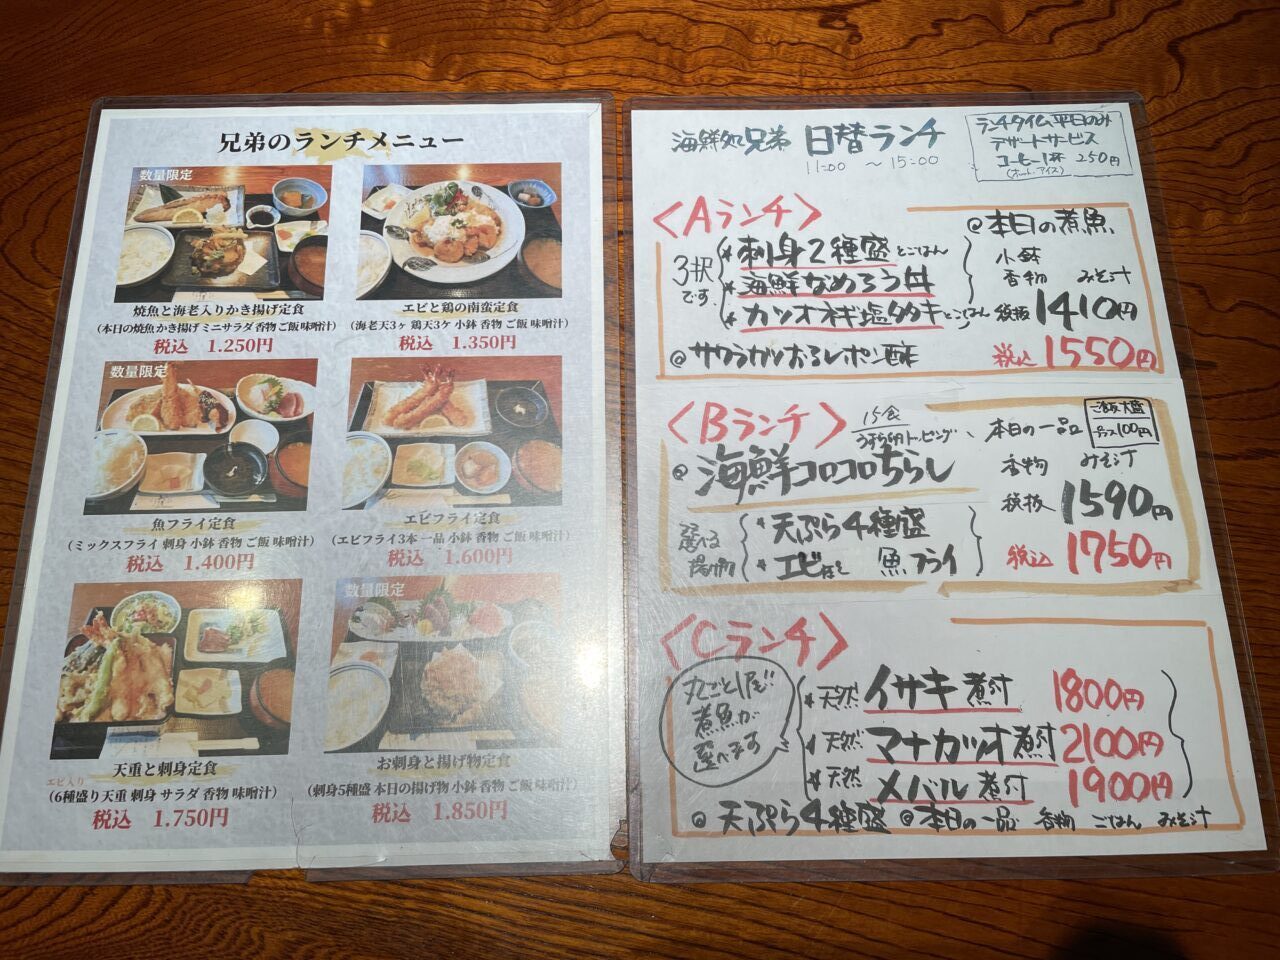 兄弟のランチメニュー
数量限定
焼魚と海老入りかき揚げ定食
(本日の焼魚 かき揚げ ミニサラダ 香物 ご飯 味噌汁)
税込 1.250円
エビと鶏の南蛮定食
(海老天3ヶ 鶏天3ケ 小鉢 香物 ご飯 味噌汁)
税込 1.350円
数量限定
魚フライ定食
(ミックスフライ 刺身 小鉢 香物 ご飯 味噌汁)
税込 1.400円
エビフライ定食
(エビフライ3本 一品 小鉢 香物 ご飯 味噌汁)
税込 1.600円
天重と刺身定食
エビ入り
(6種盛り天重 刺身 サラダ 香物 味噌汁)
税込 1.750円
数量限定
お刺身と揚げ物定食
(刺身5種盛 本日の揚げ物 小鉢 香物 ご飯 味噌汁)
税込 1.850円
海鮮処兄弟 日替ランチ
11:00 〜 15:00
ランチタイム平日のみ
デザートサービス
コーヒー1杯 250円
(ホット・アイス)
<Aランチ>
3択です
* 刺身2種盛とごはん
* 海鮮なめろう丼
* カツオネギ塩タタキとごはん
@ サワラカツおろしポン酢
@ 本日の煮魚
小鉢
香物 みそ汁
税抜 1410円
税込 1550円
<Bランチ>
15食
うずら卵トッピング
@ 海鮮コロコロちらし
選べる揚げ物
* 天ぷら4種盛
* エビ 魚フライ
本日の一品
ご飯大盛
プラス100円
香物 みそ汁
税抜 1590円
税込 1750円
<Cランチ>
丸ごと1尾!!
煮魚が
選べます
* 天然 イサキ煮付 1800円
* 天然 マナカツオ煮付 2100円
* 天然 メバル煮付 1900円
@ 天ぷら4種盛 @ 本日の一品 香物 ごはん みそ汁